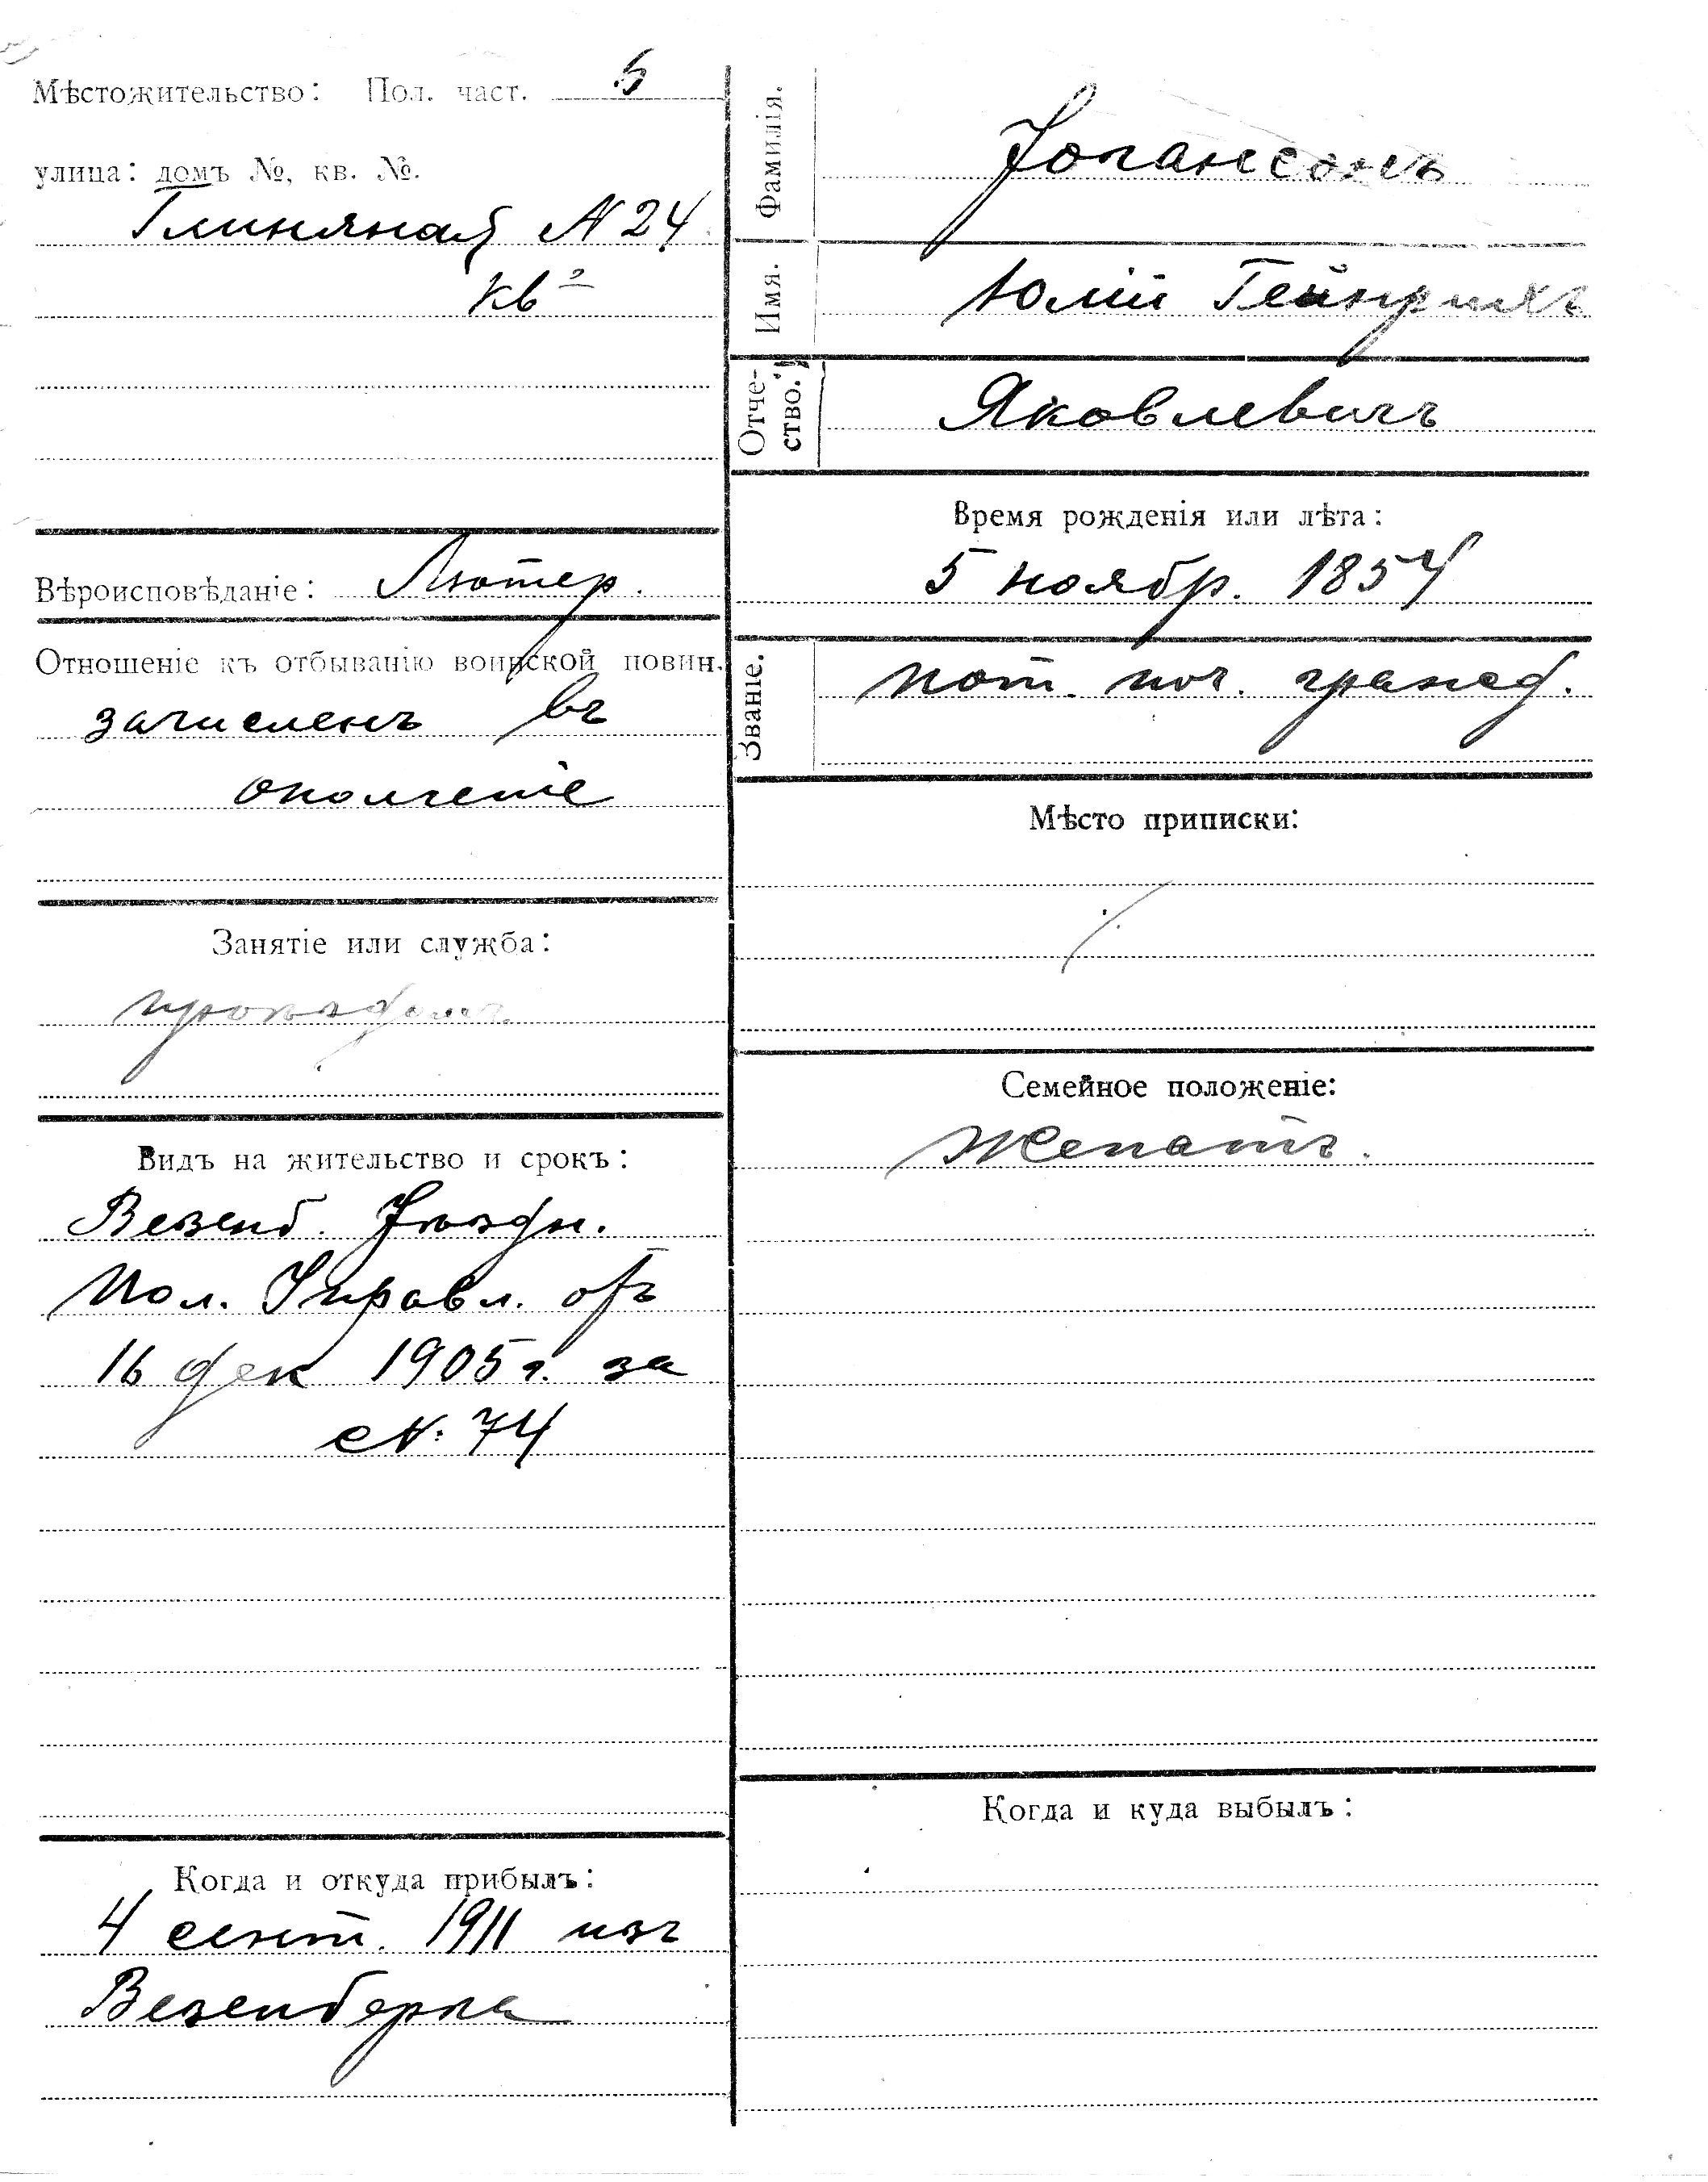 Мѣстожительство: Пол. част. 5
улица: домъ №, кв. №.
Глиняная № 24
кв 2
Вѣроисповѣданіе: Лютер.
Отношеніе къ отбыванію воинской повин.
зачисленъ въ
ополченіе
Занятіе или служба:
Видъ на жительство и срокъ:
Везенб. Уѣздн.
Пол. Управл. отъ
16 дек 1905 г. за
№ 74
Когда и откуда прибылъ:
4 сент. 1911 изъ
Везенберга
Фамилія.
Іогансонъ
Имя.
Юлій Гейнрихъ
Отче-
ство.
Яковлевичъ
Время рожденія или лѣта:
5 ноябр. 1854
Званіе.
пот. поч. гражд.
Мѣсто приписки:
Семейное положеніе:
Женатъ.
Когда и куда выбылъ: